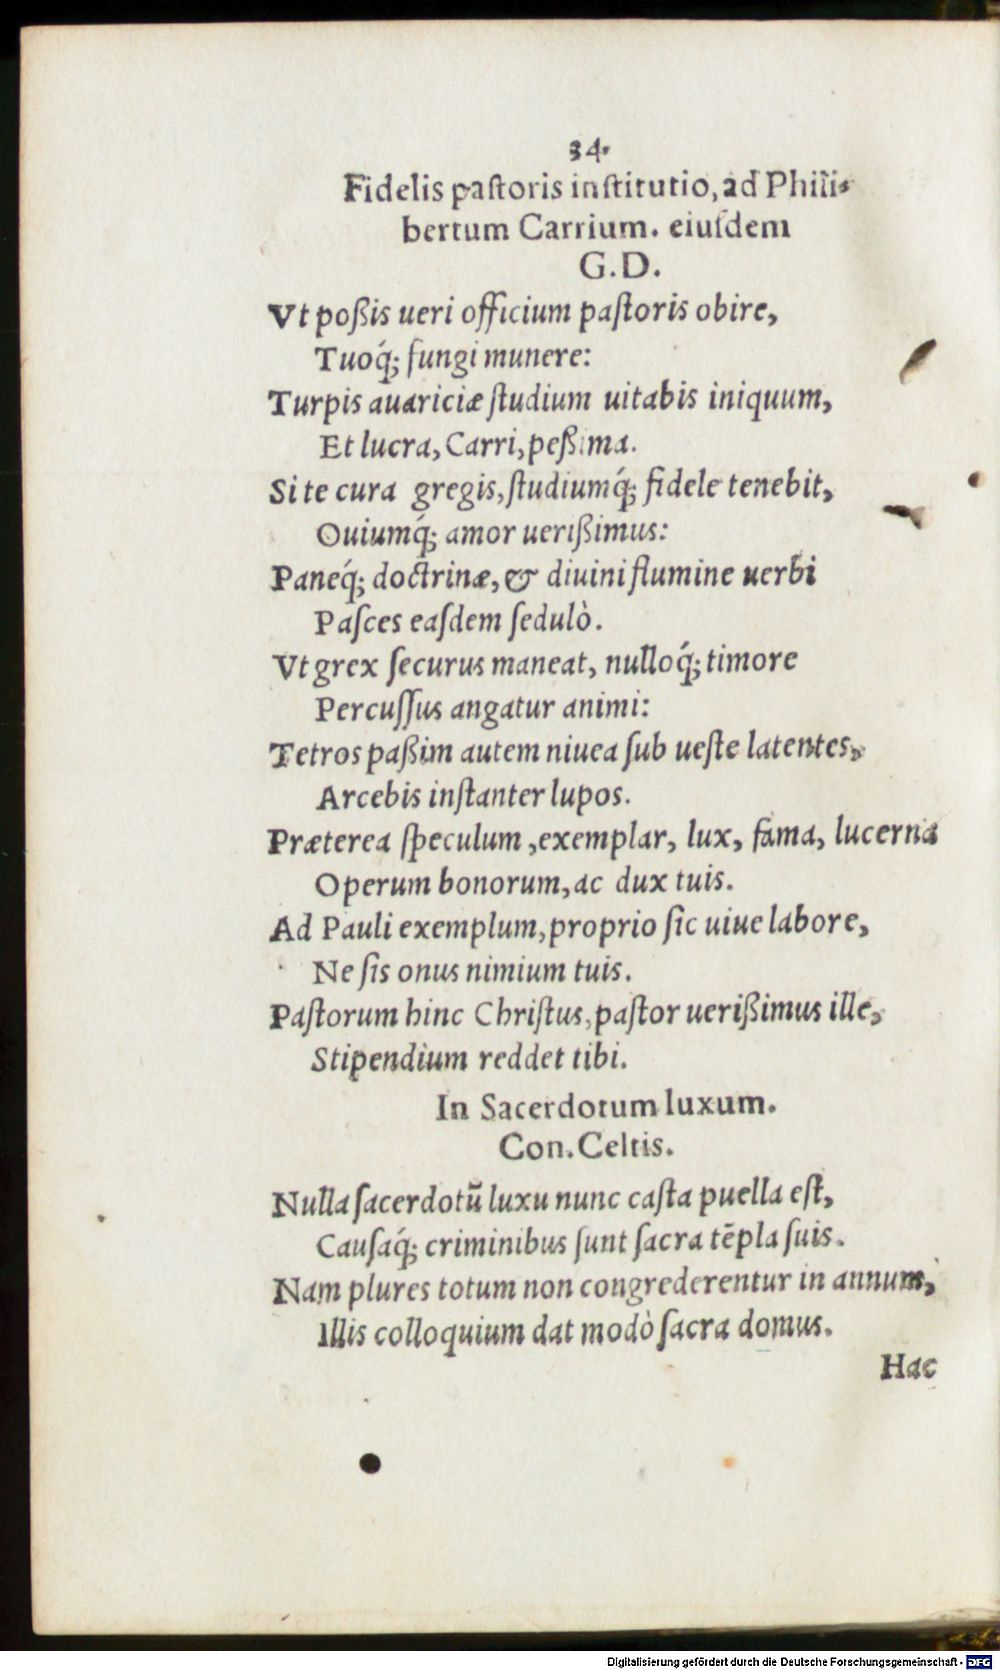 34.
Fidelis pastoris institutio, ad Phili-
bertum Carrium. eiusdem
G.D.
Vt poßis ueri officium pastoris obire,
Tuoq́; fungi munere:
Turpis auariciæ studium uitabis iniquum,
Et lucra, Carri, peßima.
Si te cura gregis, studiumq́; fidele tenebit,
Ouiumq́; amor uerißimus:
Paneq́; doctrinæ, & diuini flumine uerbi
Pasces easdem sedulò.
Vt grex securus maneat, nulloq́; timore
Percussus angatur animi:
Tetros paßim autem niuea sub ueste latentes,
Arcebis instanter lupos.
Præterea speculum, exemplar, lux, fama, lucerna
Operum bonorum, ac dux tuis.
Ad Pauli exemplum, proprio sic uiue labore,
Ne sis onus nimium tuis.
Pastorum hinc Christus, pastor uerißimus ille,
Stipendium reddet tibi.
In Sacerdotum luxum.
Con. Celtis.
Nulla sacerdotū luxu nunc casta puella est,
Causaq́; criminibus sunt sacra tēpla suis.
Nam plures totum non congrederentur in annum,
Illis colloquium dat modò sacra domus.
Hac
Digitalisierung gefördert durch die Deutsche Forschungsgemeinschaft - DFG